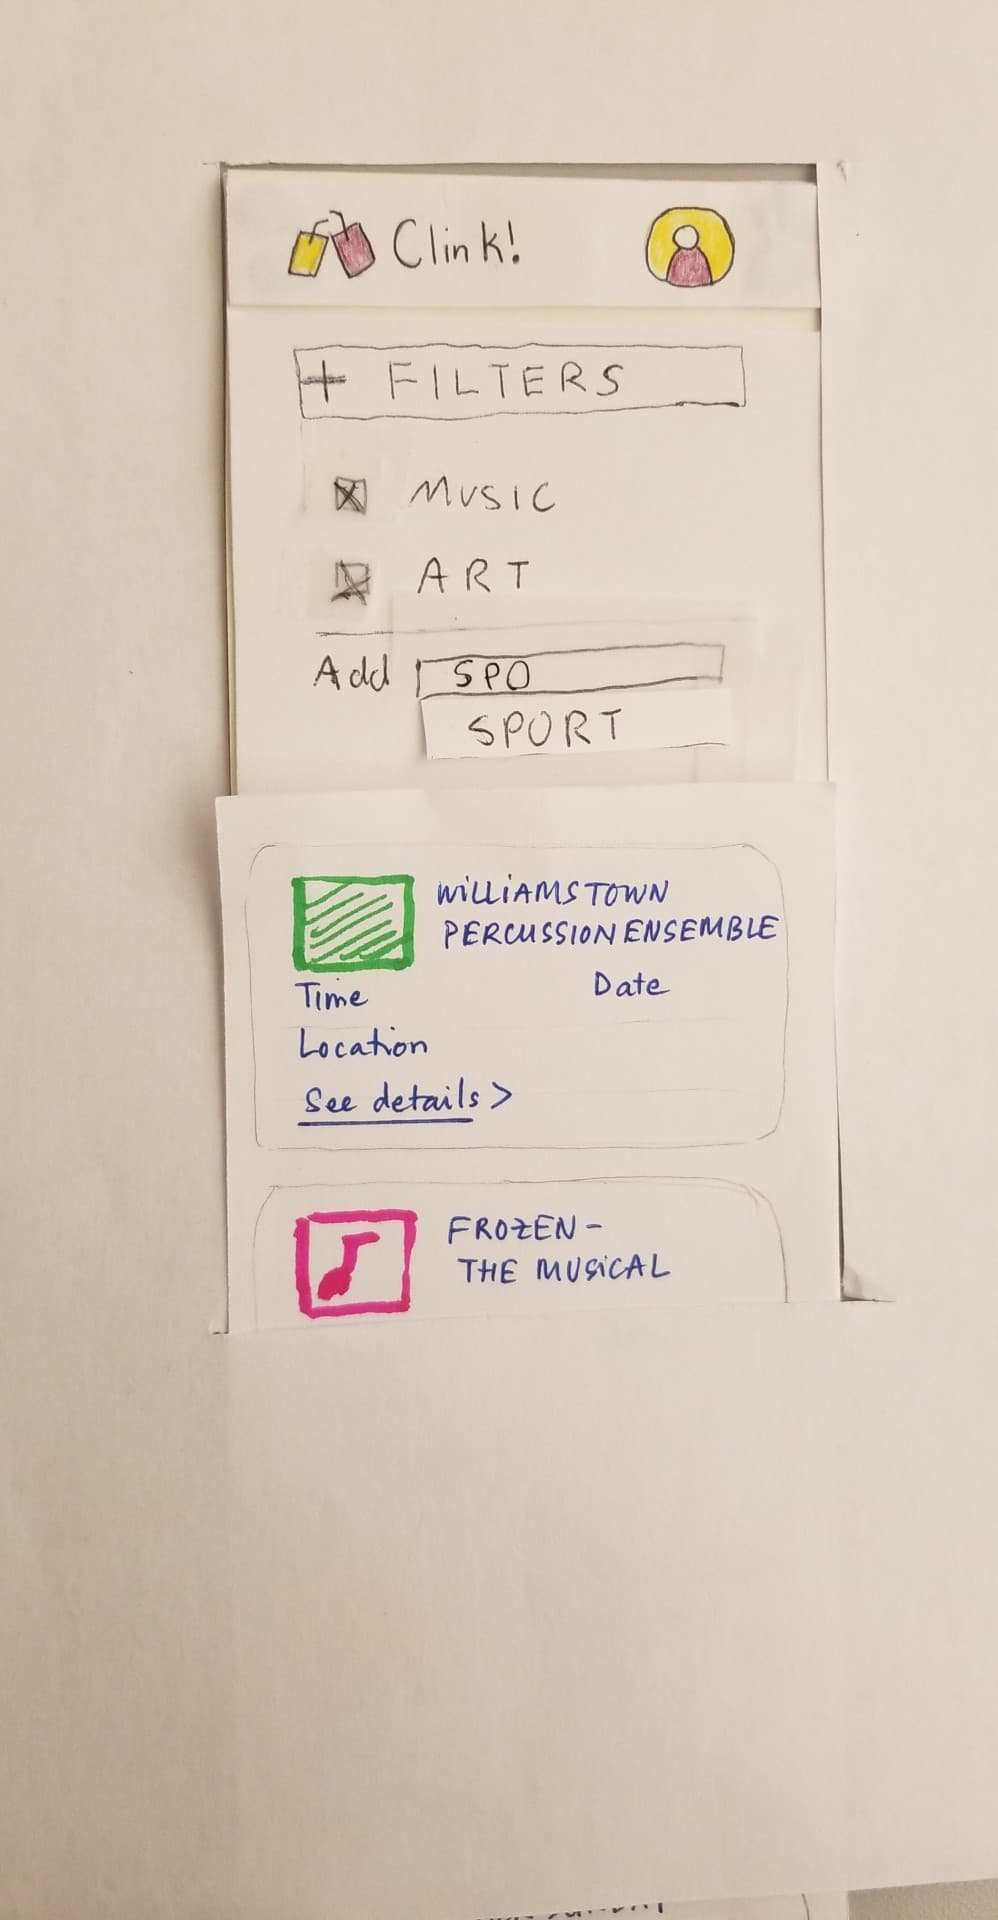 Clink!
+ FILTERS
MUSIC
ART
Add SPO
SPORT
WILLIAMSTOWN
PERCUSSION ENSEMBLE
Time Date
Location
See details >
FROZEN -
THE MUSICAL